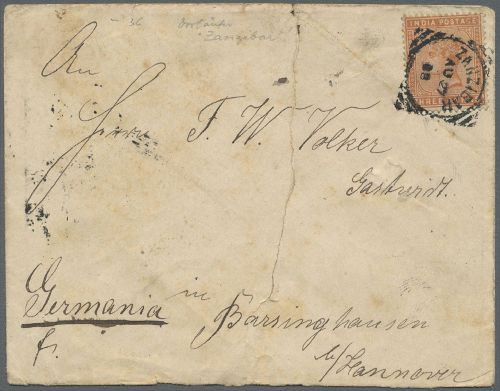 36 Vorläufer
Zanzibar
INDIA POSTAGE
THREE
ZANZIBAR
AU 27
88
An
Herrn F. W. Volker
Gastwirdt.
in
Germania
Barsinghausen
f.
b/Hannover